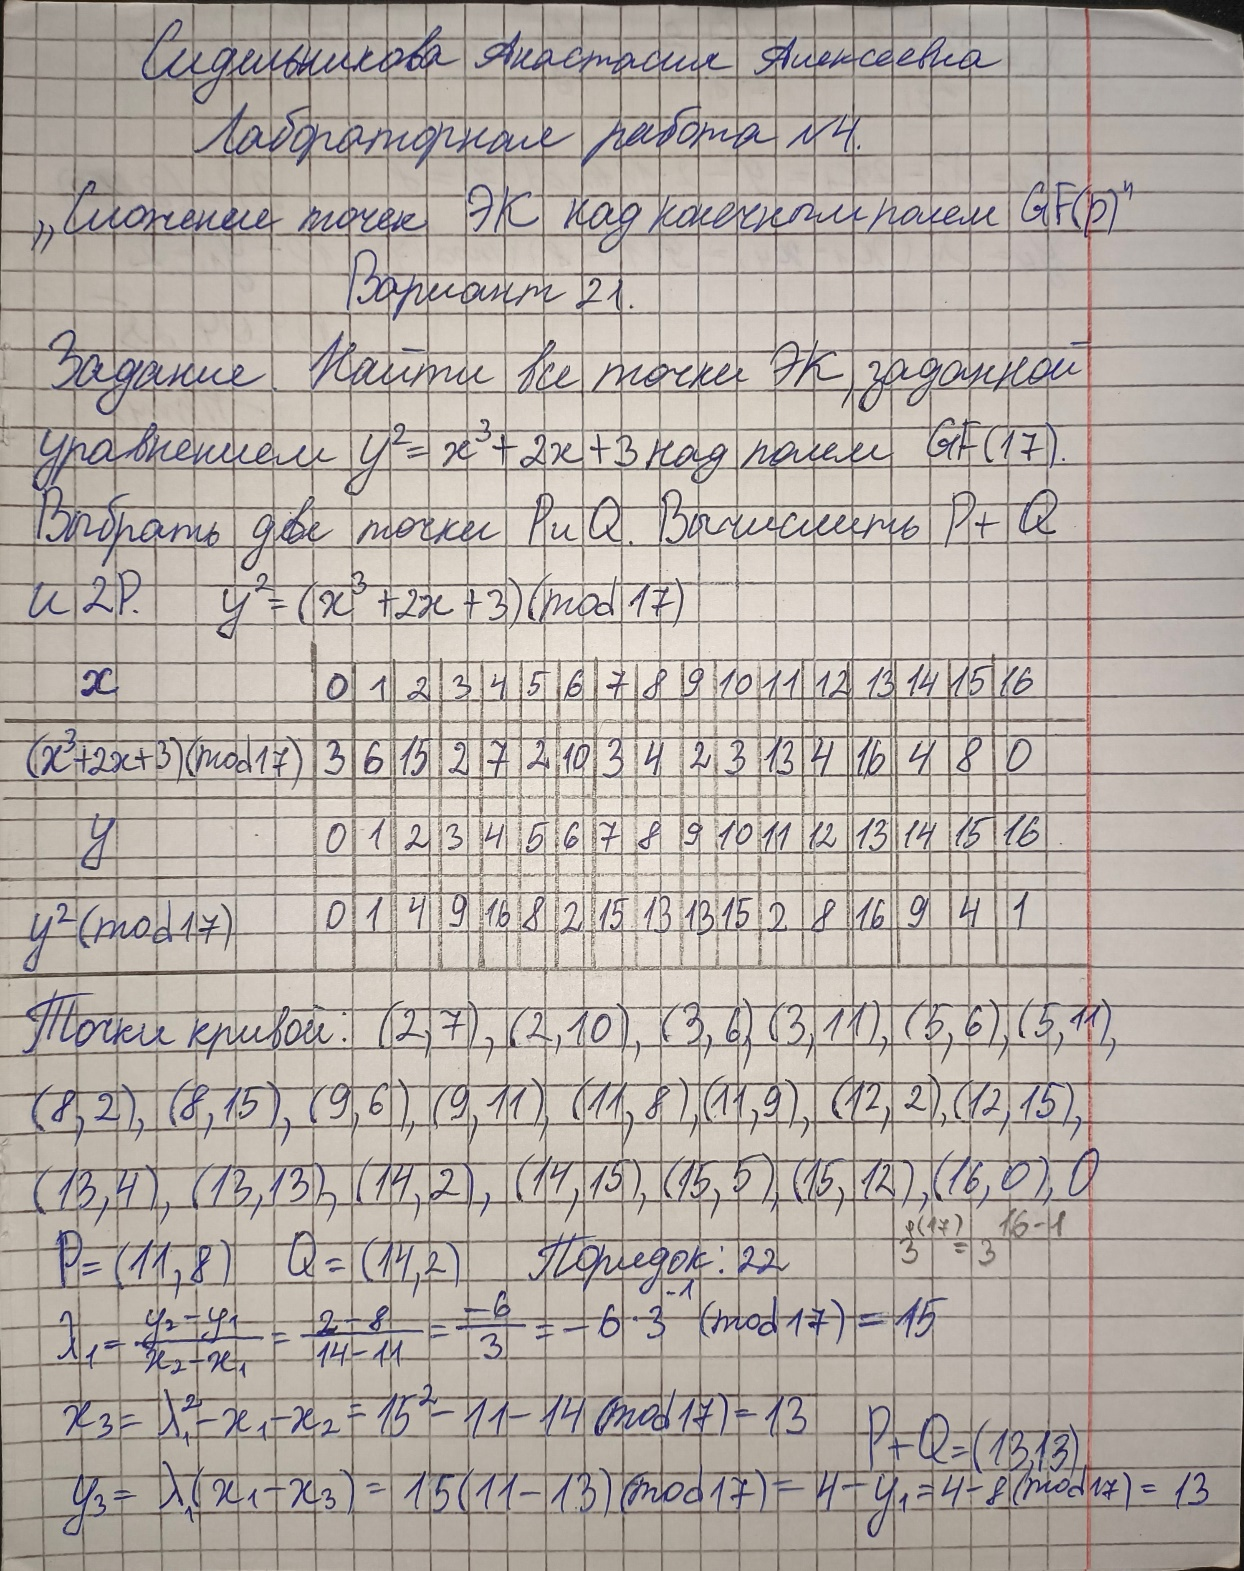 Сидельникова Анастасия Алексеевна
Лабораторная работа №4.
„Сложение точек ЭК над конечным полем GF(p)"
Вариант 21.
Задание. Найти все точки ЭК, заданной
уравнением y²= x³+2x+3 над полем GF(17).
Выбрать две точки P и Q. Вычислить P+Q
и 2P. y²=(x³+2x+3)(mod17)
x 0 1 2 3 4 5 6 7 8 9 10 11 12 13 14 15 16
(x³+2x+3)(mod17) 3 6 15 2 7 2 10 3 4 2 3 13 4 16 4 8 0
y 0 1 2 3 4 5 6 7 8 9 10 11 12 13 14 15 16
y²(mod17) 0 1 4 9 16 8 2 15 13 13 15 2 8 16 9 4 1
Точки кривой: (2,7), (2,10), (3,6), (3,11), (5,6), (5,11),
(8,2), (8,15), (9,6), (9,11), (11,8), (11,9), (12,2), (12,15),
(13,4), (13,13), (14,2), (14,15), (15,5), (15,12), (16,0), O
3^φ(17) = 3^16-1
P=(11,8) Q=(14,2) Порядок: 22
λ₁= (y₂-y₁)/(x₂-x₁) = (2-8)/(14-11) = -6/3 = -6·3⁻¹ (mod17) = 15
x₃= λ₁²-x₁-x₂ = 15²-11-14 (mod17) = 13
P+Q=(13,13)
y₃= λ₁(x₁-x₃) = 15(11-13)(mod17) = 4-y₁=4-8(mod17) = 13